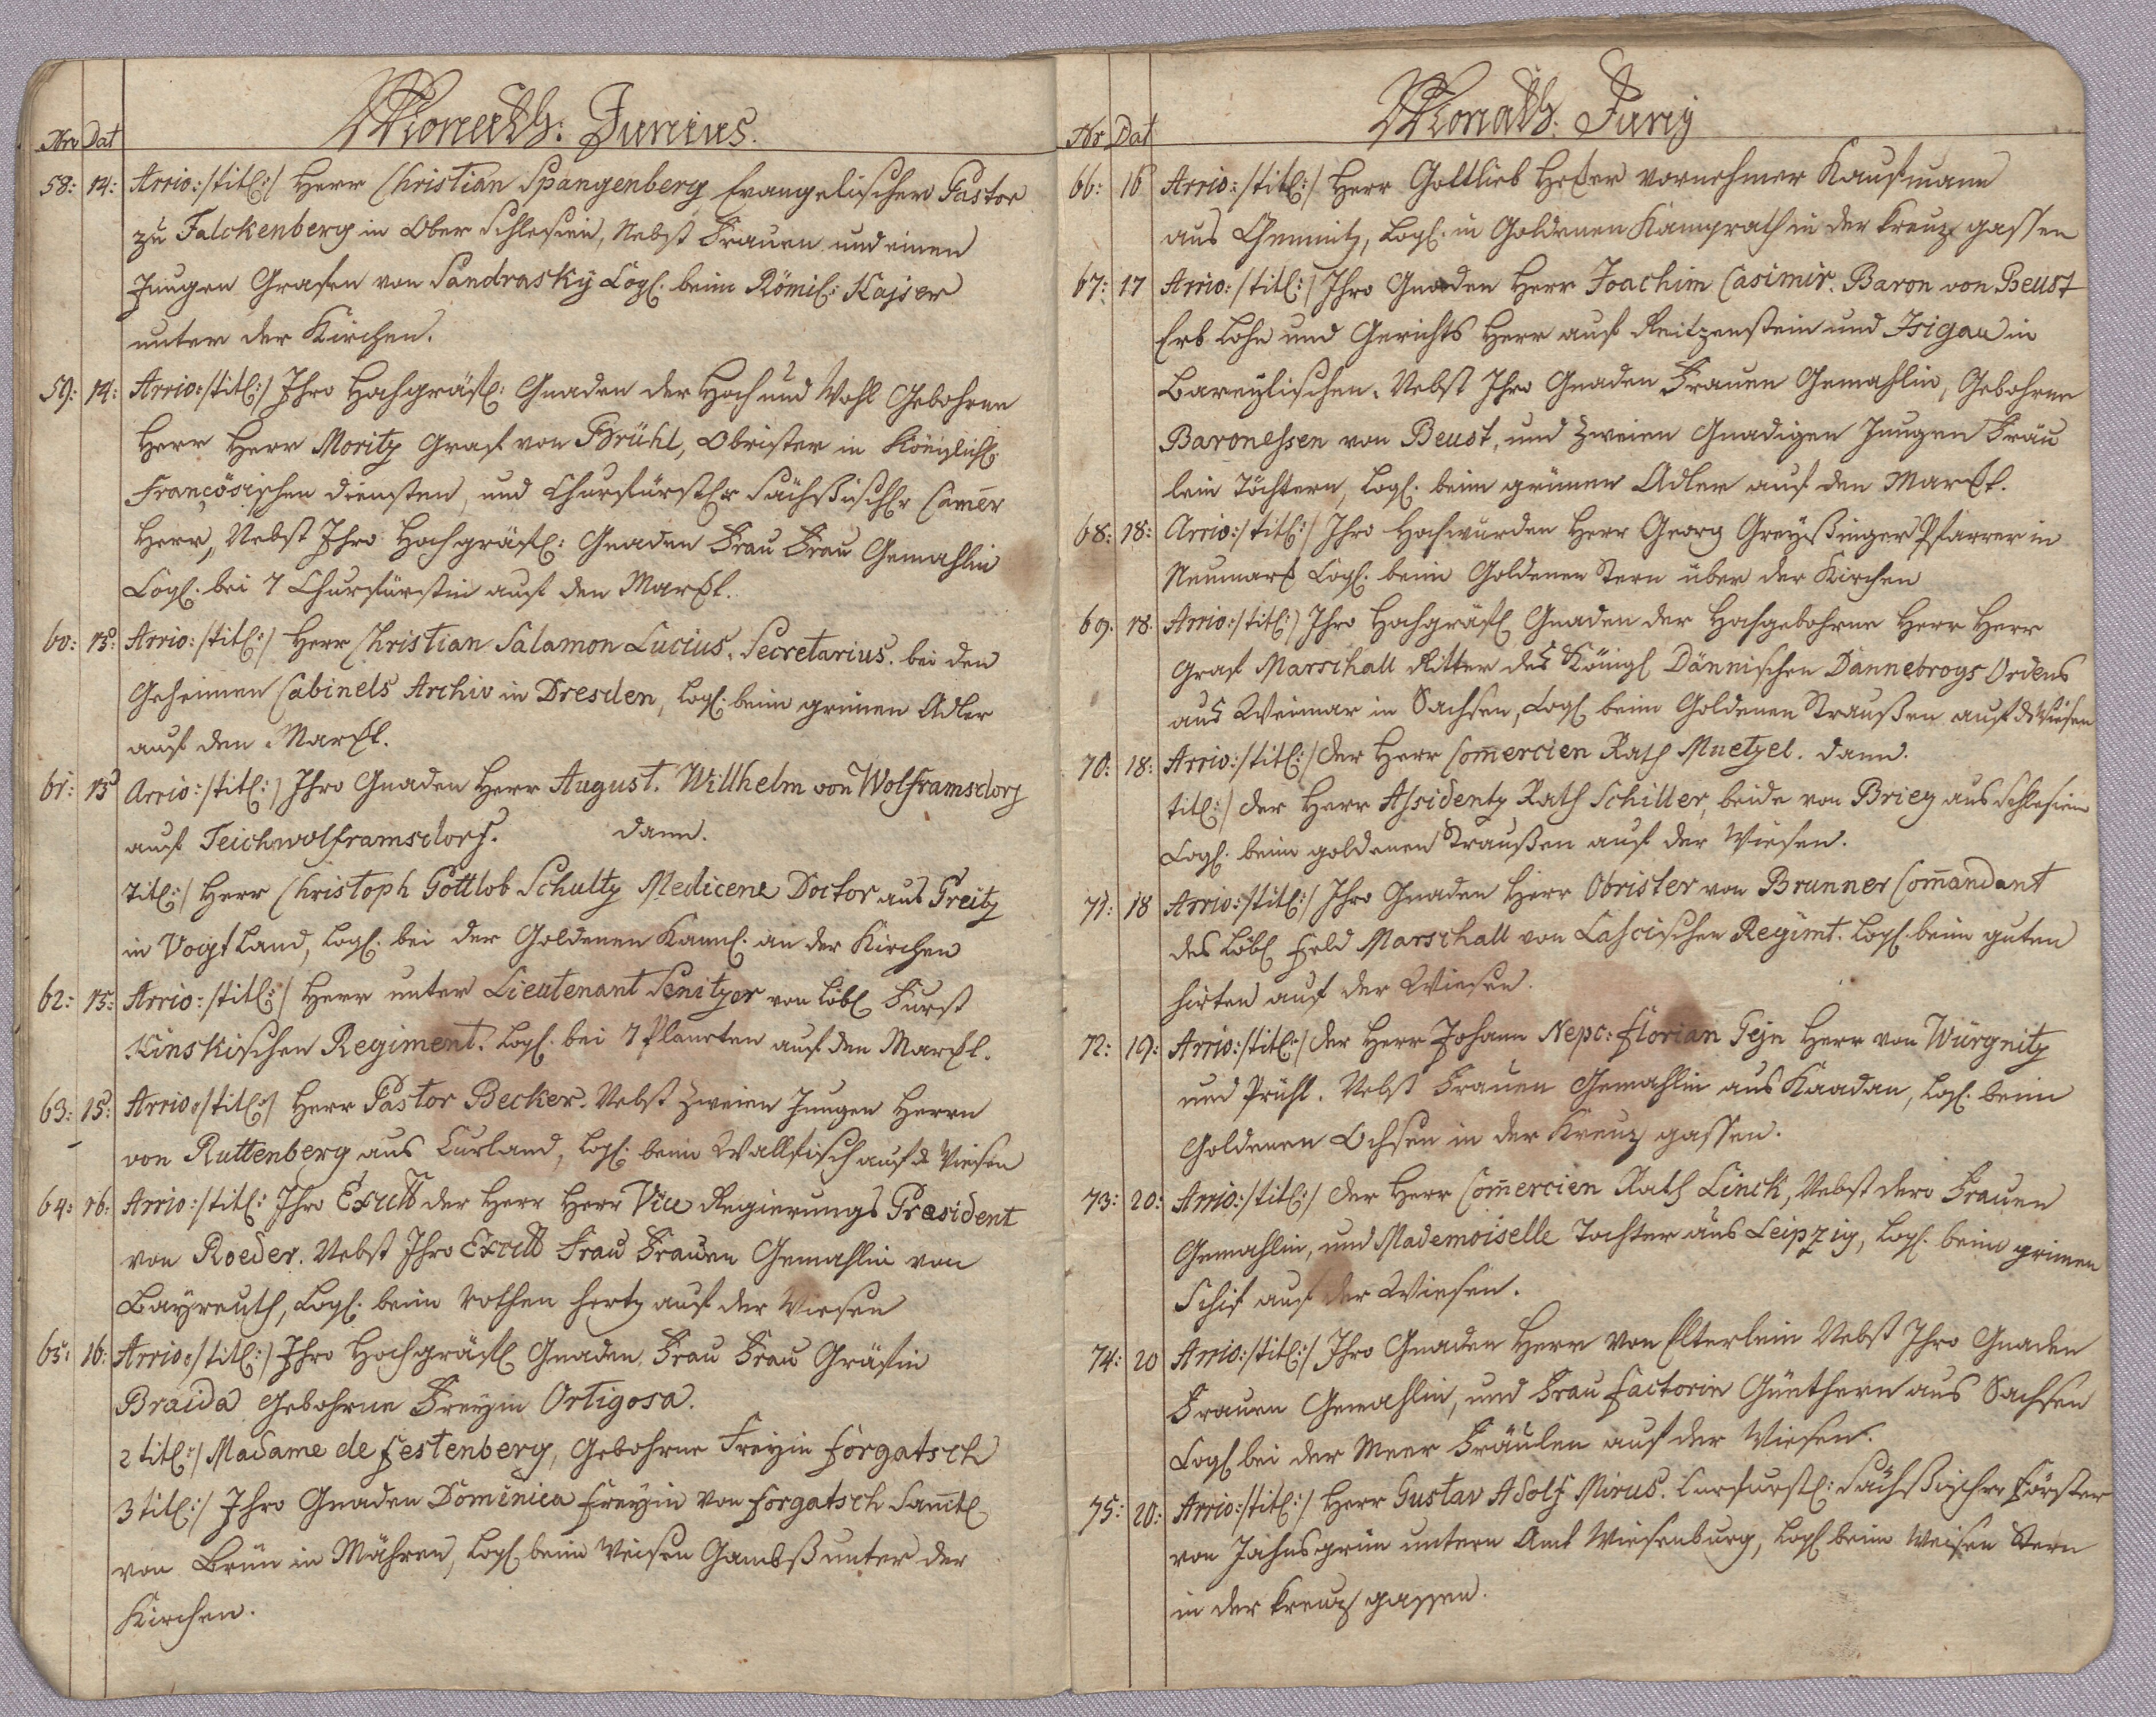 Monaths: Junius.
Nro Dat
58: 14: Arrio: /titl:/ Herr Christian Spangenberg Evangelischer Pastor
zu Falckenberg in Ober Schlesien, Nebst Frauen und einen
Jungen Grafen von Sandrasky Log: beim Römis: Kajser
unter der Kirchen.
59: 14: Arrio: /titl:/ Ihro Hochgräfl: Gnaden der Hoch und Wohl Gebohrne
Herr Herr Moritz Graf von Brühl, Obrister in Königlich
Françösischen diensten, und Churfürstlr Sächßischer Camer
Herr, Nebst Ihro Hochgräfl: Gnaden Frau Frau Gemahlin
Log: bei 7 Churfürstin auf den Markt.
60: 15: Arrio: /titl:/ Herr Christian Salamon Lucius. Secretarius. bei den
Geheimen Cabinets Archiv in Dresden, Log: beim grünen Adler
auf den Markt.
61: 15 Arrio: /titl:/ Ihro Gnaden Herr August. Willhelm von Wolframsdorf
auf Teichwolframsdorf. dann.
titl:/ Herr Christoph Gottlob Schultz Medicene Doctor aus Greitz
in Voigt Land, Log: bei der Goldenen Kannl. an der Kirchen
62: 15: Arrio: /titl:/ Herr unter Lieutenant Senitzer von Löbl Fürst
Kinskischen Regiment. Log: bei 7 Planeten auf den Markt.
63: 15: Arrio: /titl:/ Herr Pastor Becker. Nebst zweien Jungen Herrn
von Ruttenberg aus Curland, Log: beim Wallfisch auf d Wiesen
64: 16: Arrio: /titl: Ihro Excell der Herr Herr Vice Regierungs Præsident
von Roeder. Nebst Ihro Excell Frau Frauen Gemahlin von
Bayreuth, Log: beim rothen Hertz auf der Wiesen
65: 16: Arrio: /titl:/ Ihro Hochgräfl Gnaden Frau Frau Gräfin
Braida Gebohrne Freyin Ortigosa.
2 titl:/ Madame de Festenberg, Gebohrne Freyin Forgatsch
3 titl:/ Ihro Gnaden Dominica Freyin von Forgatsch Samtl
von Brün in Mähren, Log: beim Weisen Gambß unter der
Kirchen.
Monaths: Junij
Nr Dat
66: 16 Arrio: /titl:/ Herr Gottlieb vornehmer Kaufmann
aus Chemnitz, Log: in Goldenen Kamprath in der Kreuz gassen
67: 17 Arrio: /titl:/ Ihro Gnaden Herr Joachim Casimir. Baron von Beust
Erb Lehn und Gerichts Herr auf Reitzenstein und Isigau in
Bareytischen. Nebst Ihro Gnaden Frauen Gemahlin, Gebohrne
Baronessen von Beust, und zweien Gnädigen Jungen Fräu
lein Töchtern, Log: beim grünen Adler auf den Markt.
68: 18: Arrio: /titl:/ Ihro Hochwürden Herr Georg Greyßinger Pfarrer in
Neumark Log: beim Goldenen Stern über der Kirchen
69. 18. Arrio: /titl:/ Ihro Hochgräfl Gnaden der Hochgebohrne Herr Herr
Graf Marschall Ritter des Königl Dännischen Dannebrogs Ordens
aus Weimar in Sachsen, Log: beim Goldenen Straußen auf d Wiesen
70: 18: Arrio: /titl:/ der Herr Comercien Rath Muetzel. dann.
titl:/ der Herr Assidentz Rath Schiller, beide von Brieg aus Schlesien
Log: beim goldenen Straußen auf der Wiesen.
71: 18 Arrio: /titl:/ Ihro Gnaden Herr Obrister von Brunner Comandant
des Löbl Feld Marschall von Lascischen Regimt. Log: beim guten
Hirten auf der Wiesen.
72: 19: Arrio: /titl:/ der Herr Johann Nepc: Florian Herr von Würgnitz
und Prühl. Nebst Frauen Gemahlin aus Kaadan, Log: beim
Goldenen Ochsen in der Kreuz gassen.
73: 20: Arrio: /titl:/ der Herr Comercien Rath Linck, Nebst dero Frauen
Gemahlin, und Mademoiselle Tochter aus Leipzig, Log: beim grünen
Schif auf der Wiesen.
74: 20 Arrio: /titl:/ Ihro Gnaden Herr von Elterlein Nebst Ihro Gnaden
Frauen Gemahlin, und Frau Factorin Günthern aus Sachsen
Log: bei der Meer Fräulen auf der Wiesen.
75: 20: Arrio: /titl:/ Herr Gustav Adolf Mirus. Curfürstl: Sächßischer Förster
von Jahnsgrün untern Amt Wiesenburg, Log: beim Weisen Stern
in der Kreuz gassen.